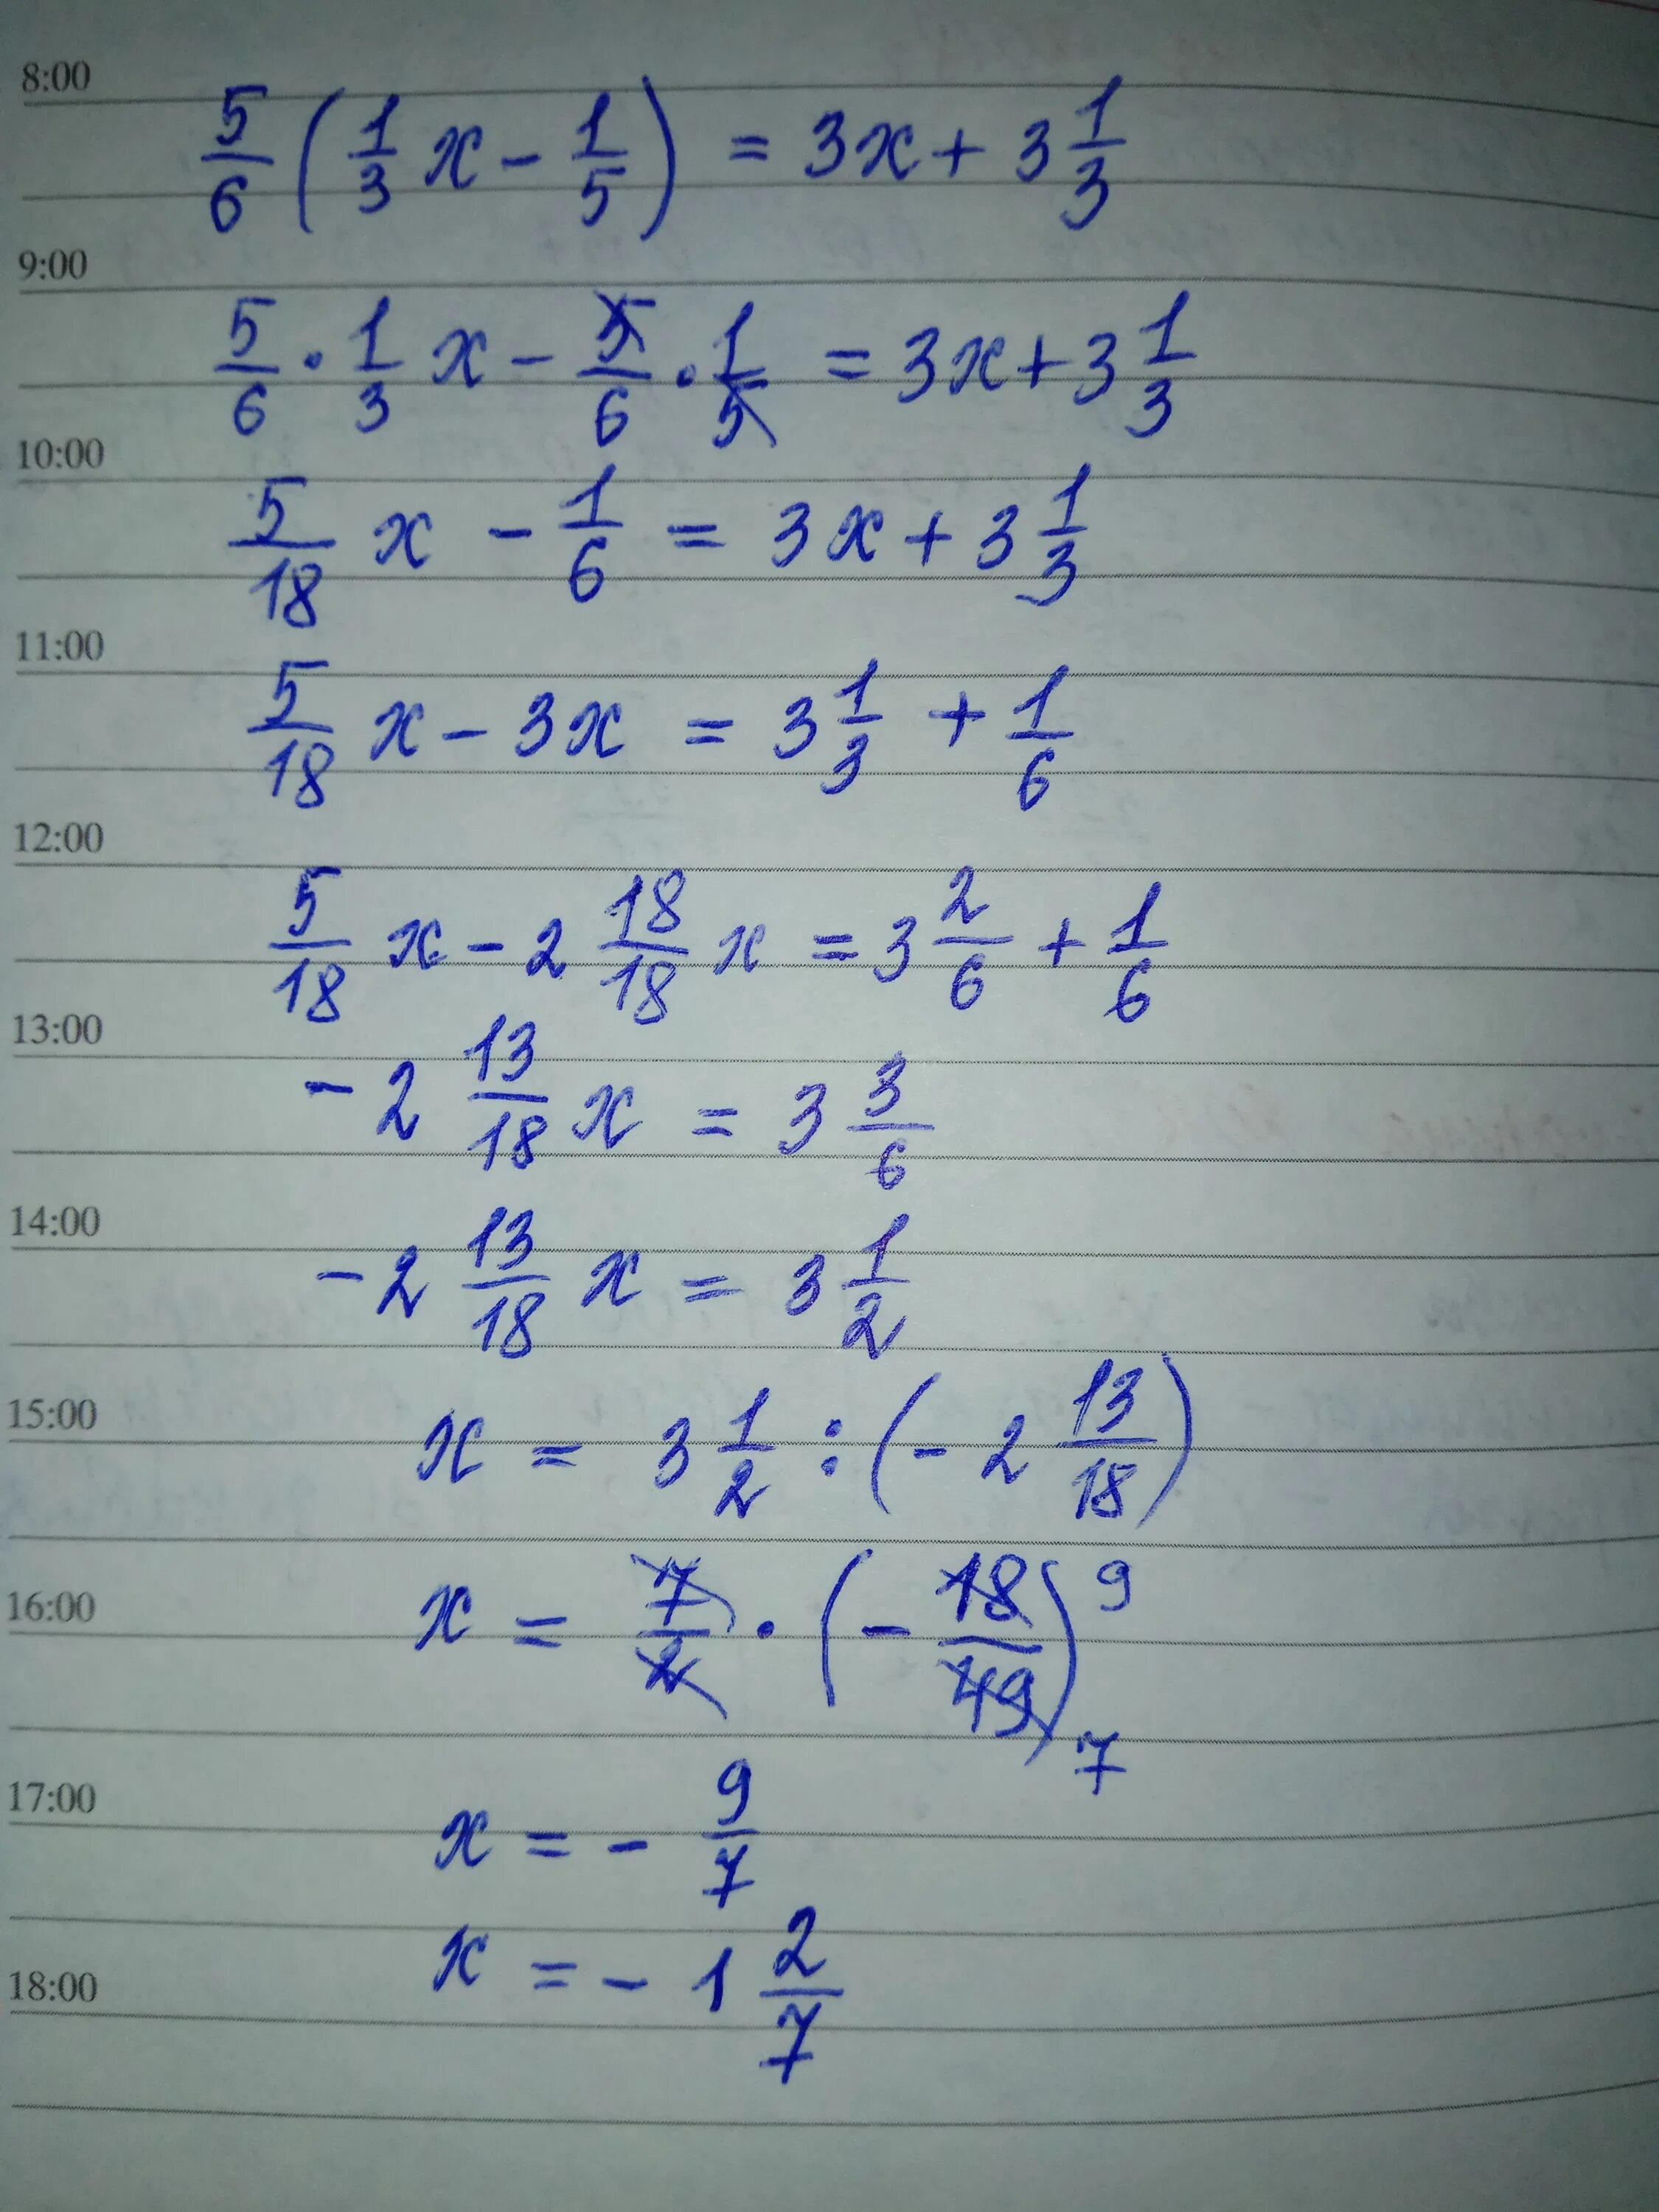 8:00
5/6 (1/3 x - 1/5) = 3x + 3 1/3
9:00
5/6 · 1/3 x - 5/6 · 1/5 = 3x + 3 1/3
10:00
5/18 x - 1/6 = 3x + 3 1/3
11:00
5/18 x - 3x = 3 1/3 + 1/6
12:00
5/18 x - 2 18/18 x = 3 2/6 + 1/6
13:00
- 2 13/18 x = 3 3/6
14:00
- 2 13/18 x = 3 1/2
15:00
x = 3 1/2 : (- 2 13/18)
16:00
x = 7/2 · (- 18/49) 9 7
17:00
x = - 9/7
18:00
x = - 1 2/7